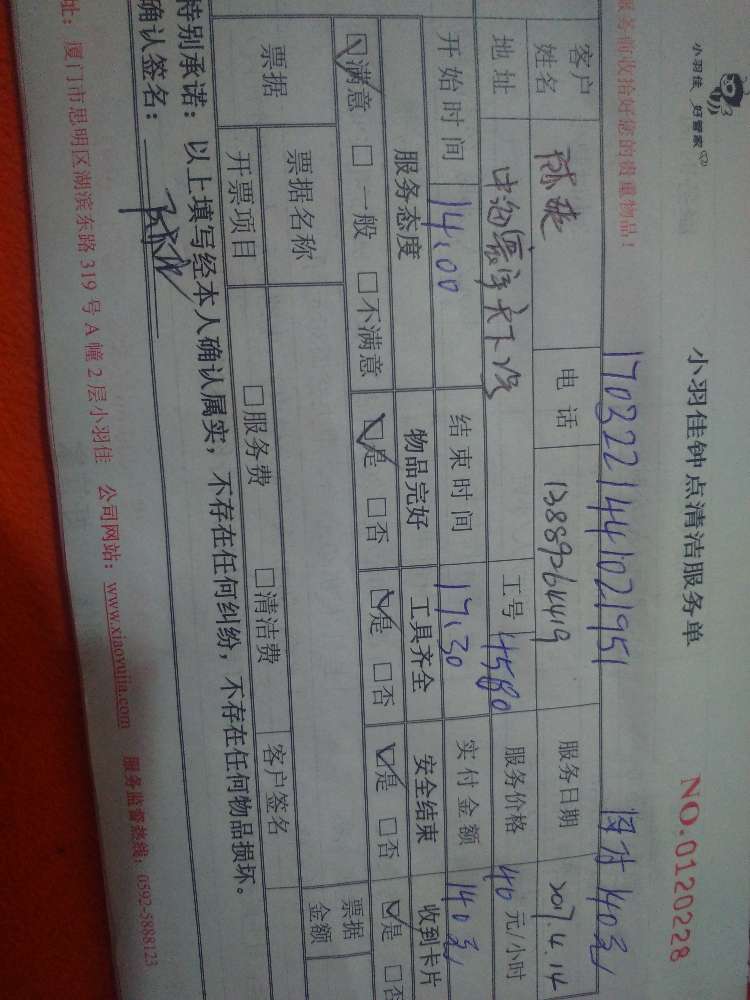 小羽佳 好管家
服务前收拾好您的贵重物品!
小羽佳钟点清洁服务单
NO.0120228
1703221441021951
140元
客户姓名 陈 电话 13889264419 服务日期 2017.4.14
地址 中海寰宇天下 工号 4580 服务价格 40 元/小时
开始时间 14:00 结束时间 17:30 实付金额 140元
服务态度 物品完好 工具齐全 安全结束 收到卡片
☑满意 □一般 □不满意 ☑是 □否 ☑是 □否 ☑是 □否 ☑是 □否
票据 票据名称 票据金额
开票项目 □服务费 □清洁费 客户签名
特别承诺:以上填写经本人确认属实,不存在任何纠纷,不存在任何物品损坏。
确认签名:
址:厦门市思明区湖滨东路 319 号 A 幢 2 层小羽佳 公司网站:www.xiaoyujia.com 服务监督热线:0592-5888123